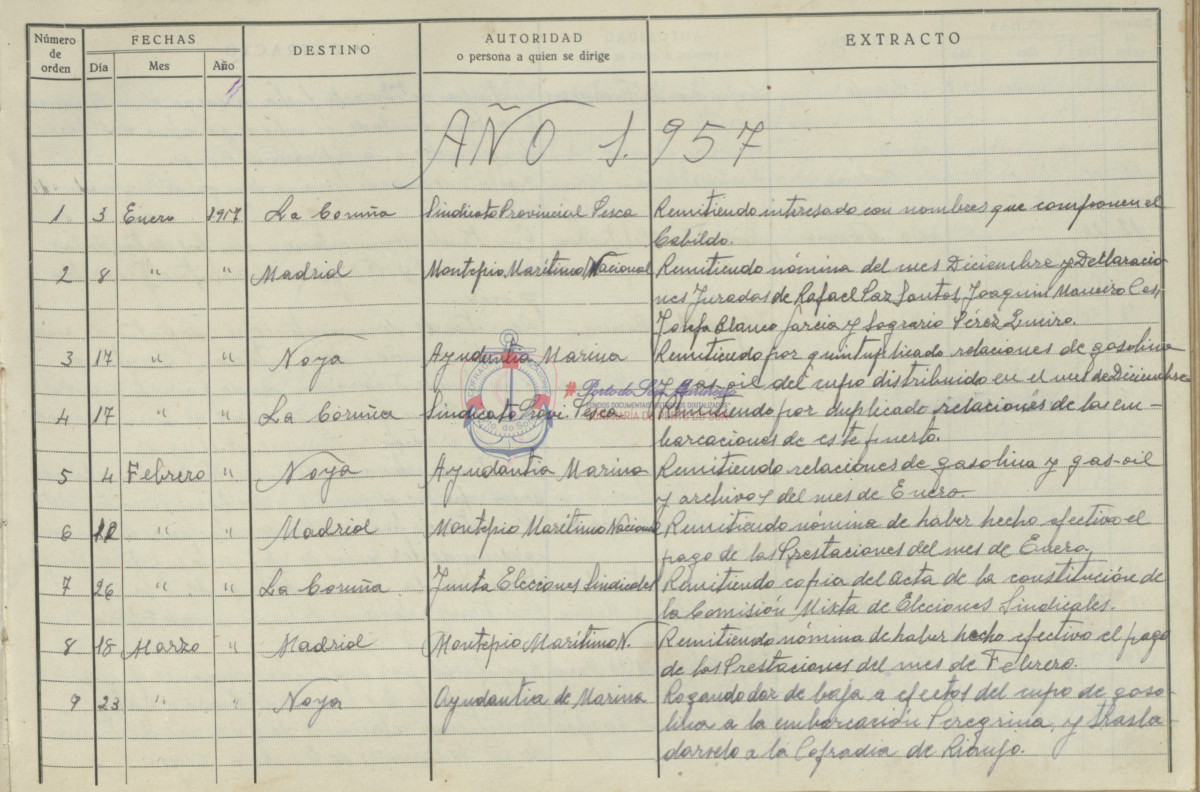 Número de orden FECHAS DESTINO AUTORIDAD o persona a quien se dirige EXTRACTO
Día Mes Año
AÑO 1.957
1 3 Enero 1957 La Coruña Sindicato Provincial Pesca Remitiendo interesado con nombres que componen el
Cabildo.
2 8 " " Madrid Montepio Marítimo Nacional Remitiendo nómina del mes Diciembre y Declaracio-
nes Juradas de Rafael Paz Santos, Joaquin Maneiro
Josefa Blanco Garcia y Sagrario Pérez
3 17 " " Noya Ayudantia Marina Remitiendo por quintuplicado relaciones de gasolina
y gas-oil del cupo distribuido en el mes de Diciembre
4 17 " " La Coruña Sindicato Provi. Pesca Remitiendo por duplicado relaciones de las em-
barcaciones de este puerto.
5 4 Febrero " Noya Ayudantia Marina Remitiendo relaciones de gasolina y gas-oil
y del mes de Enero.
6 12 " " Madrid Montepio Marítimo Nacional Remitiendo nómina de haber hecho efectivo el
pago de las Prestaciones del mes de Enero.
7 26 " " La Coruña Junta Elecciones Sindicales Remitiendo copia del Acta de la constitución de
la Comisión Mixta de Elecciones Sindicales.
8 18 Marzo " Madrid Montepio Marítimo N. Remitiendo nómina de haber hecho efectivo el pago
de las Prestaciones del mes de Febrero.
9 23 " " Noya Ayudantia de Marina Rogando dar de baja a efectos del cupo de gaso-
lina a la embarcación Peregrina, y trasla
darselo a la Cofradia de